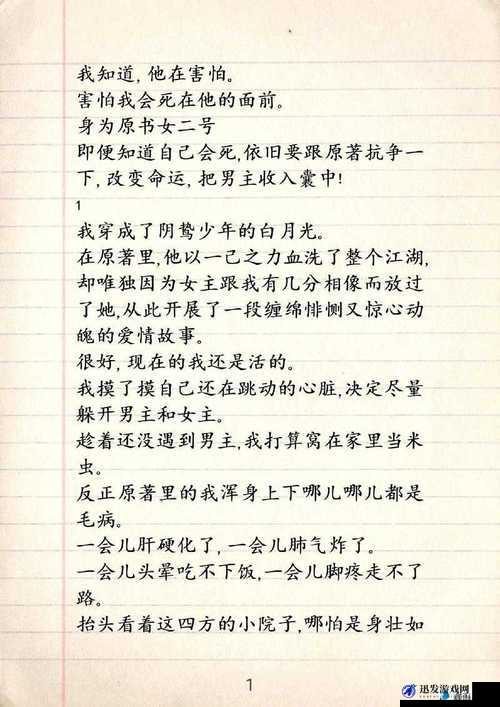 我知道,他在害怕。
害怕我会死在他的面前。
身为原书女二号
即便知道自己会死,依旧要跟原著抗争一
下,改变命运,把男主收入囊中!
1
我穿成了阴鸷少年的白月光。
在原著里,他以一己之力血洗了整个江湖,
却唯独因为女主跟我有几分相像而放过
了她,从此开展了一段缠绵悱恻又惊心动
魄的爱情故事。
很好,现在的我还是活的。
我摸了摸自己还在跳动的心脏,决定尽量
躲开男主和女主。
趁着还没遇到男主,我打算窝在家里当米
虫。
反正原著里的我浑身上下哪儿哪儿都是
毛病。
一会儿肝硬化了,一会儿肺气炸了。
一会儿头晕吃不下饭,一会儿脚疼走不了
路。
抬头看着这四方的小院子,哪怕是身壮如
1
迅发游戏网